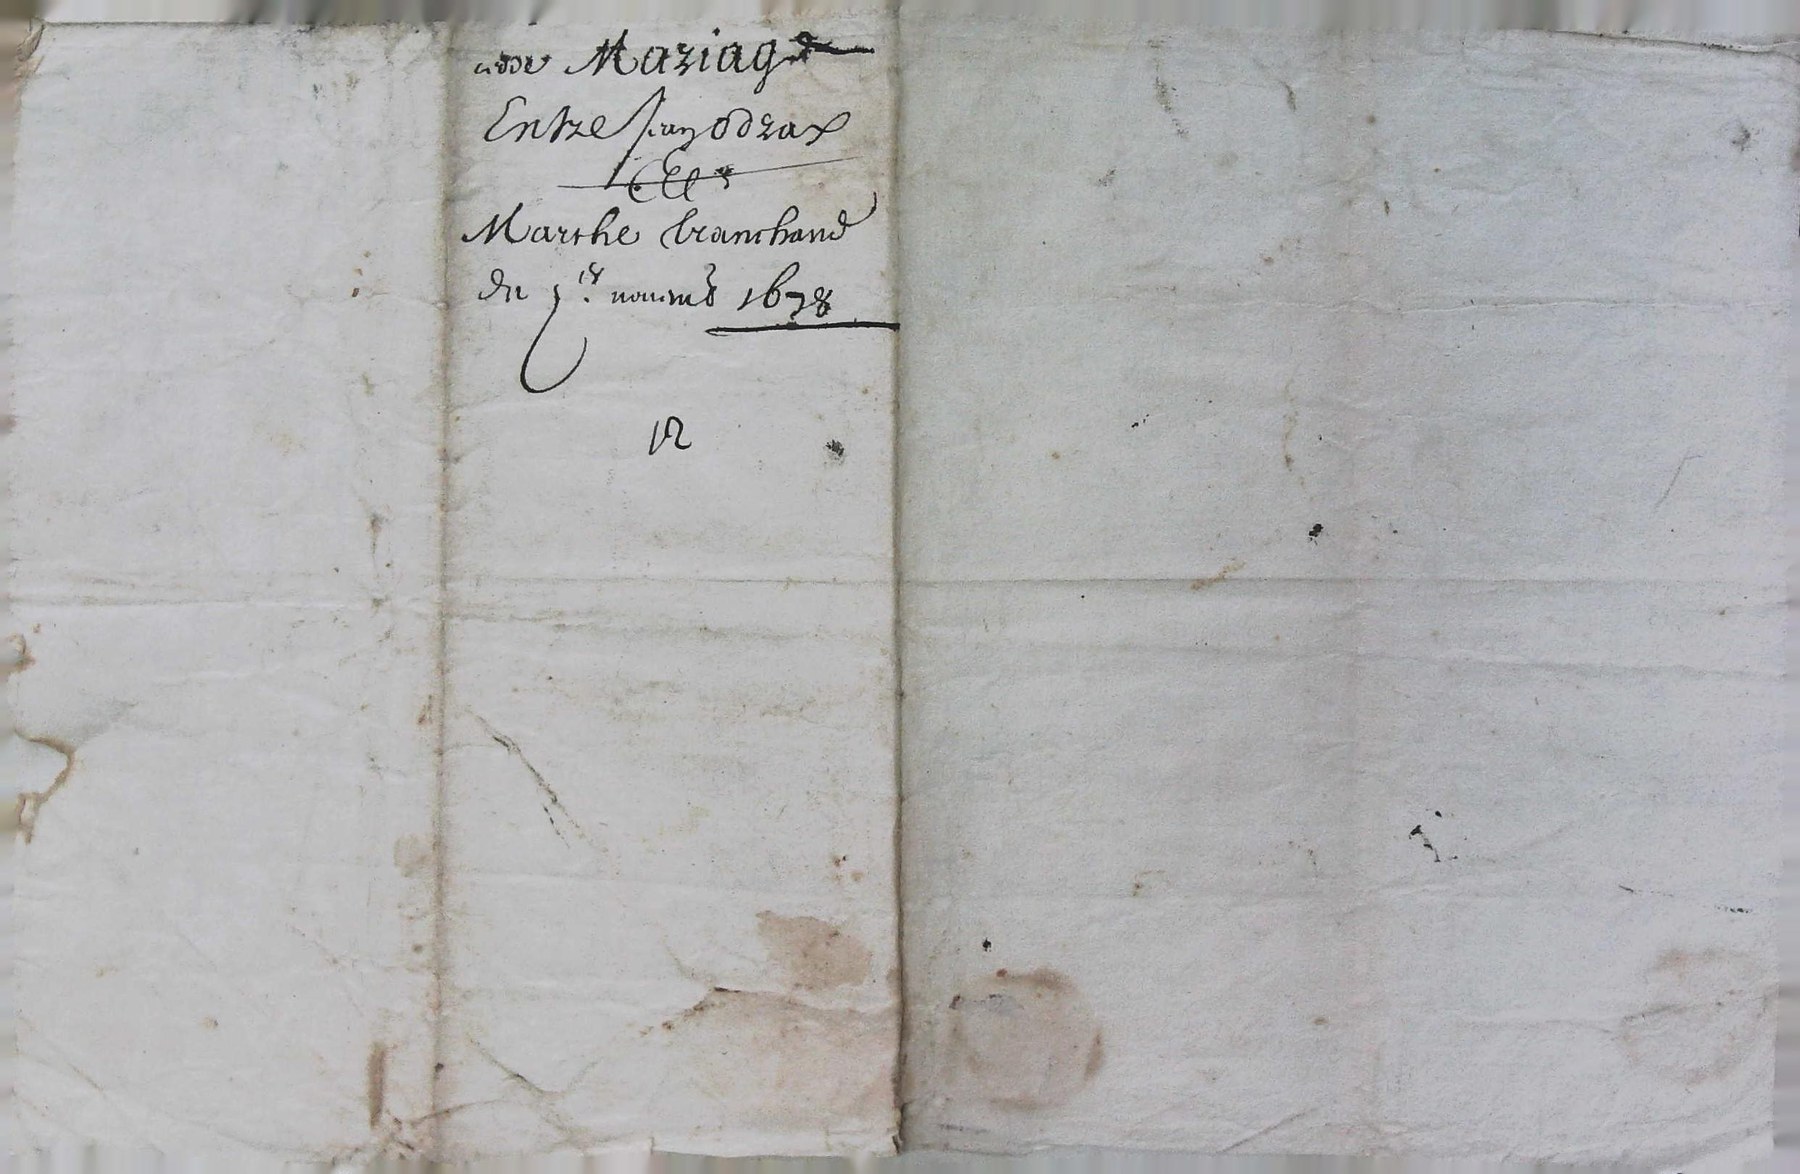 Mariage
Entre Jean odrax
Et
Marthe branchaud
du 5.e novemb 1678
12